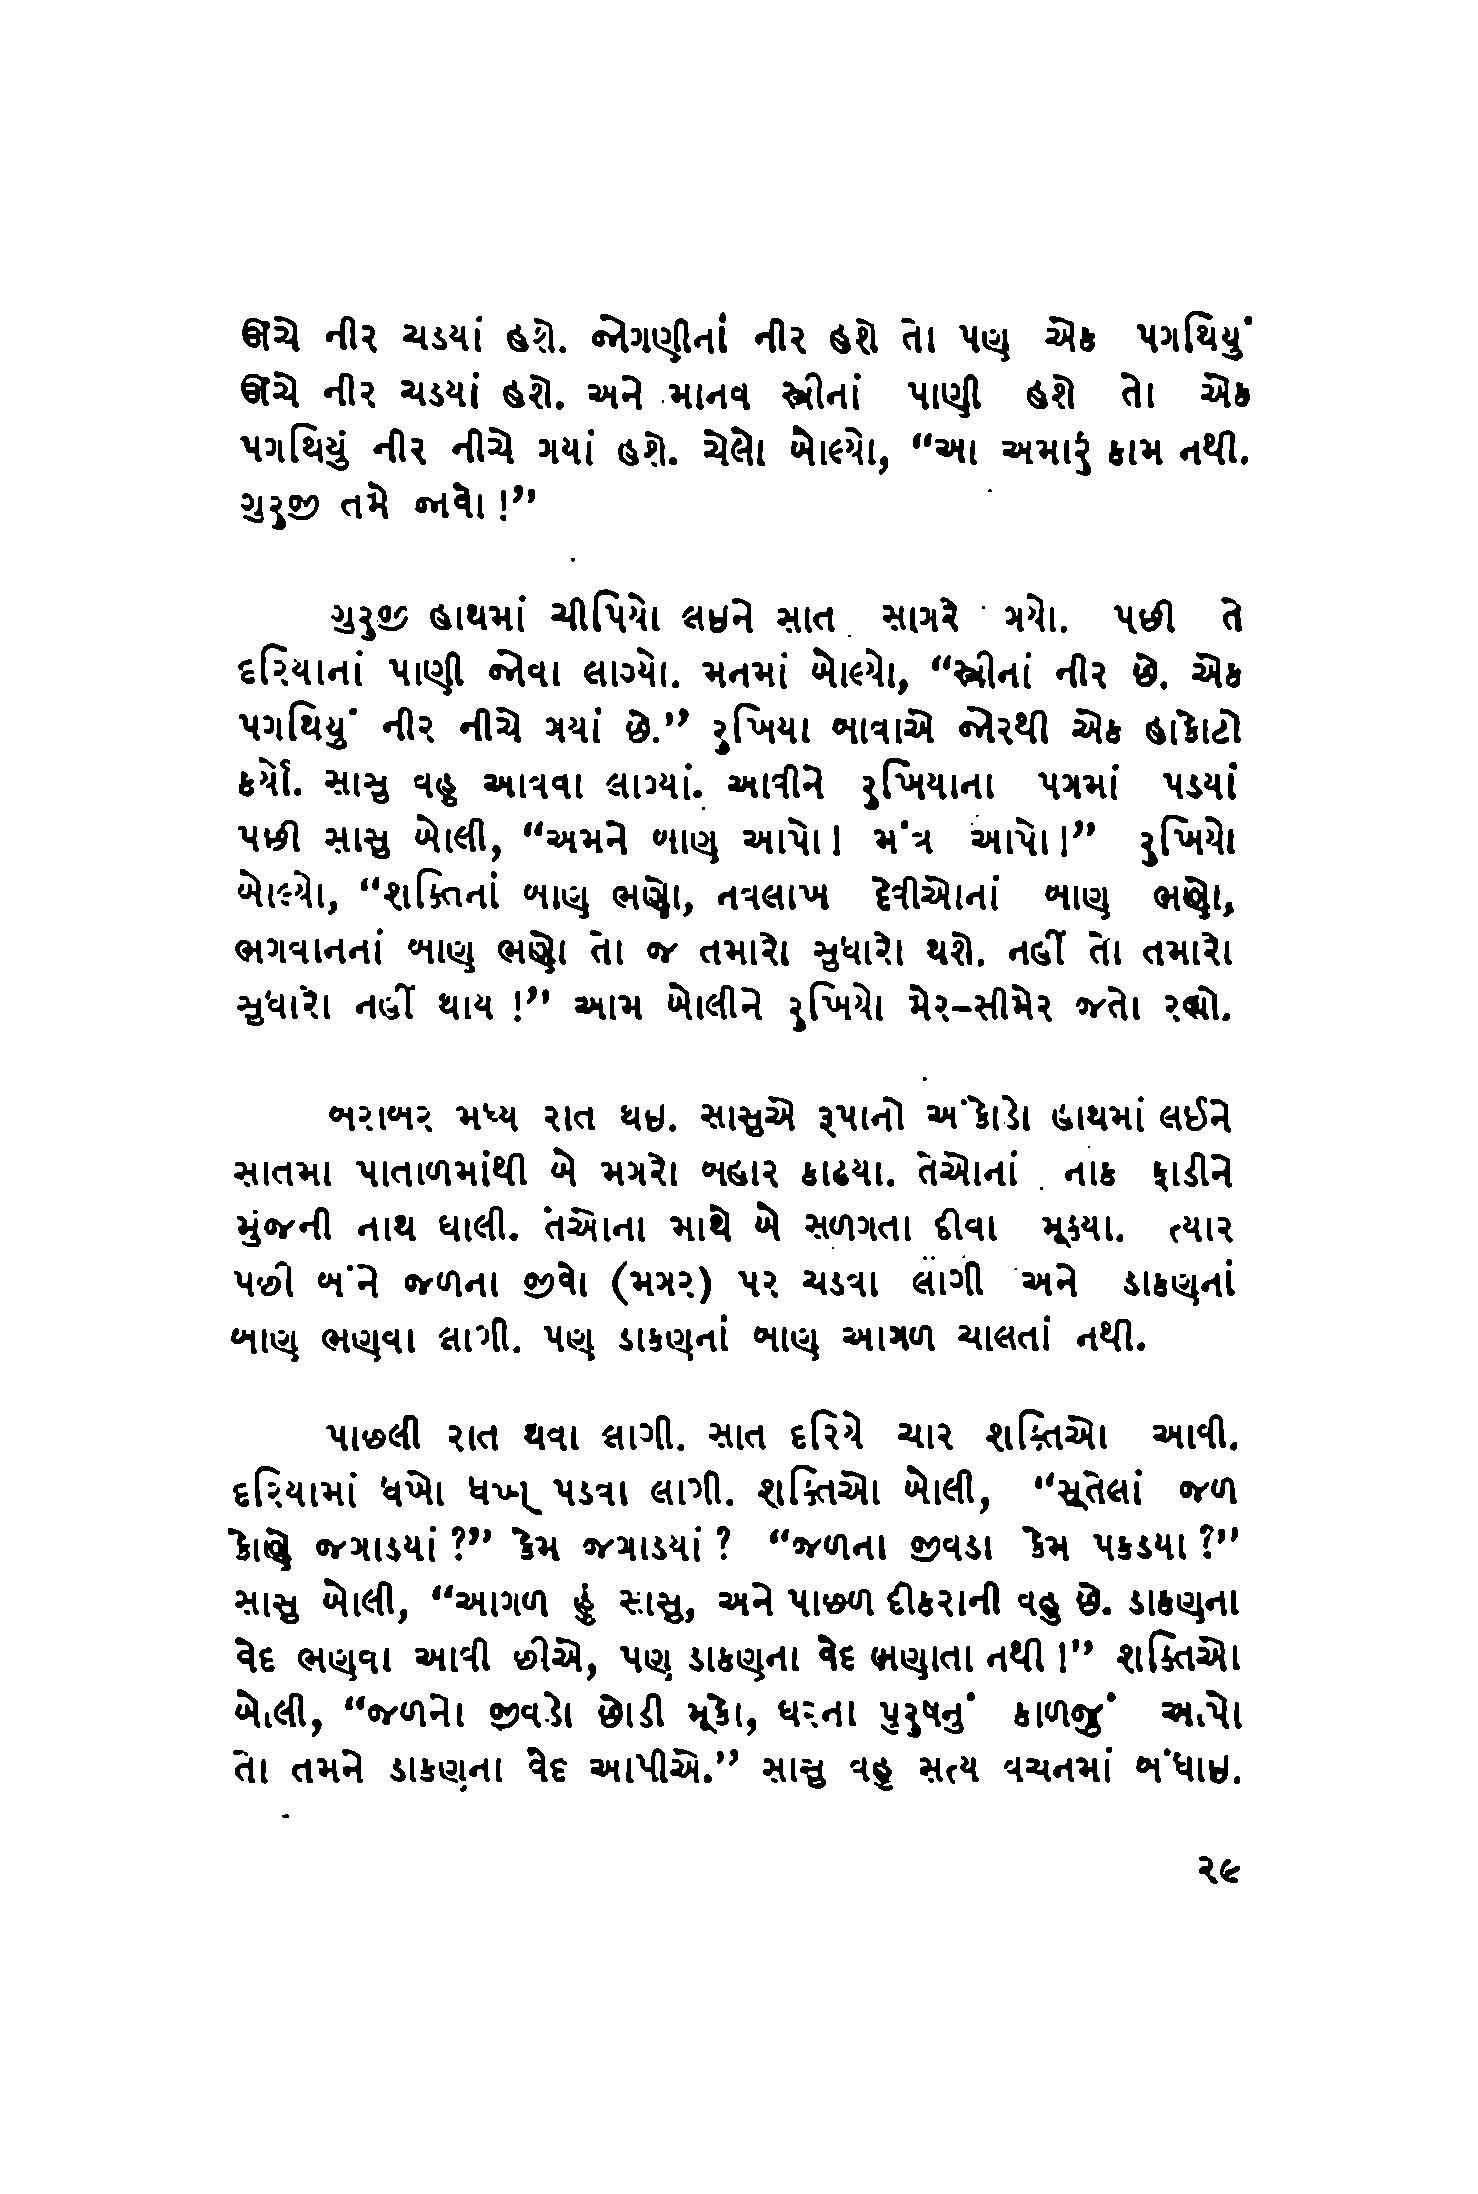 ઊંચે નીર ચડયાં હશે. જોગણીનાં નીર હશે તો પણ એક પગથિયું
ઊંચે નીર ચડયાં હશે. અને માનવ સ્ત્રીનાં પાણી હશે તો એક
પગથિયું નીર નીચે ગયાં હશે. ચેલો બોલ્યો, “આ અમારું કામ નથી.
ગુરુજી તમે જાવો !”
ગુરુજી હાથમાં ચીપિયો લઇને સાત સાગરે ગયો. પછી તે
દરિયાનાં પાણી જોવા લાગ્યો. મનમાં બોલ્યો, “સ્ત્રીનાં નીર છે. એક
પગથિયું નીર નીચે ગયાં છે.” રુખિયા બાવાએ જોરથી એક હાકોટો
કર્યો. સાસુ વહુ આવવા લાગ્યાં. આવીને રુખિયાના પગમાં પડયાં
પછી સાસુ બોલી, “અમને બાણ આપો! મંત્ર આપો!” રુખિયો
બોલ્યો, “શક્તિનાં બાણ ભણો, નવલાખ દેવીઓનાં બાણ ભણો,
ભગવાનનાં બાણ ભણો તો જ તમારો સુધારો થશે. નહીં તો તમારો
સુધારો નહીં થાય !” આમ બોલીને રુખિયો મેર-સીમેર જતો રહ્યો.
બરાબર મધ્ય રાત થઇ. સાસુએ રૂપાનો અંકોડો હાથમાં લઈને
સાતમા પાતાળમાંથી બે મગરો બહાર કાઢયા. તેઓનાં નાક ફાડીને
મુંજની નાથ ઘાલી. તેઓના માથે બે સળગતા દીવા મૂકયા. ત્યાર
પછી બંને જળના જીવો (મગર) પર ચડવા લાગી અને ડાકણનાં
બાણ ભણવા લાગી. પણ ડાકણનાં બાણ આગળ ચાલતાં નથી.
પાછલી રાત થવા લાગી. સાત દરિયે ચાર શક્તિઓ આવી.
દરિયામાં ધબો ધબ્ પડવા લાગી. શક્તિઓ બોલી, “સૂતેલાં જળ
કોણે જગાડયાં ?” કેમ જગાડયાં ? “જળના જીવડા કેમ પકડયા ?”
સાસુ બોલી, “આગળ હું સાસુ, અને પાછળ દીકરાની વહુ છે. ડાકણના
વેદ ભણવા આવી છીએ, પણ ડાકણના વેદ ભણાતા નથી !” શક્તિઓ
બોલી, “જળનો જીવડો છોડી મૂકો, ઘરના પુરુષનું કાળજું આપો
તો તમને ડાકણના વેદ આપીએ.” સાસુ વહુ સત્ય વચનમાં બંધાઇ.
૨૯